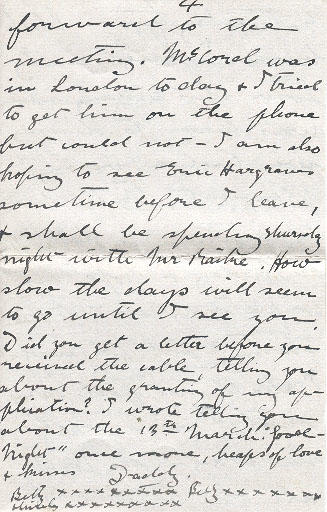 4
forward to the
meeting. McCorel was
in London to day & I tried
to get him on the phone
but could not - I am also
hoping to see Eric Hargraves
sometime before I leave,
& shall be spending Thursday
night with Mr . How
slow the days will seem
to go until I see you.
Did you get a letter before you
received the cable, telling you
about the granting of my ap-
plication? I wrote telling you
about the 13th March. "Good-
night" once more, heaps of love
& kisses Daddy.
Betty xxxxxxxxx Betty xxxxxxx
xxxxxxxxx